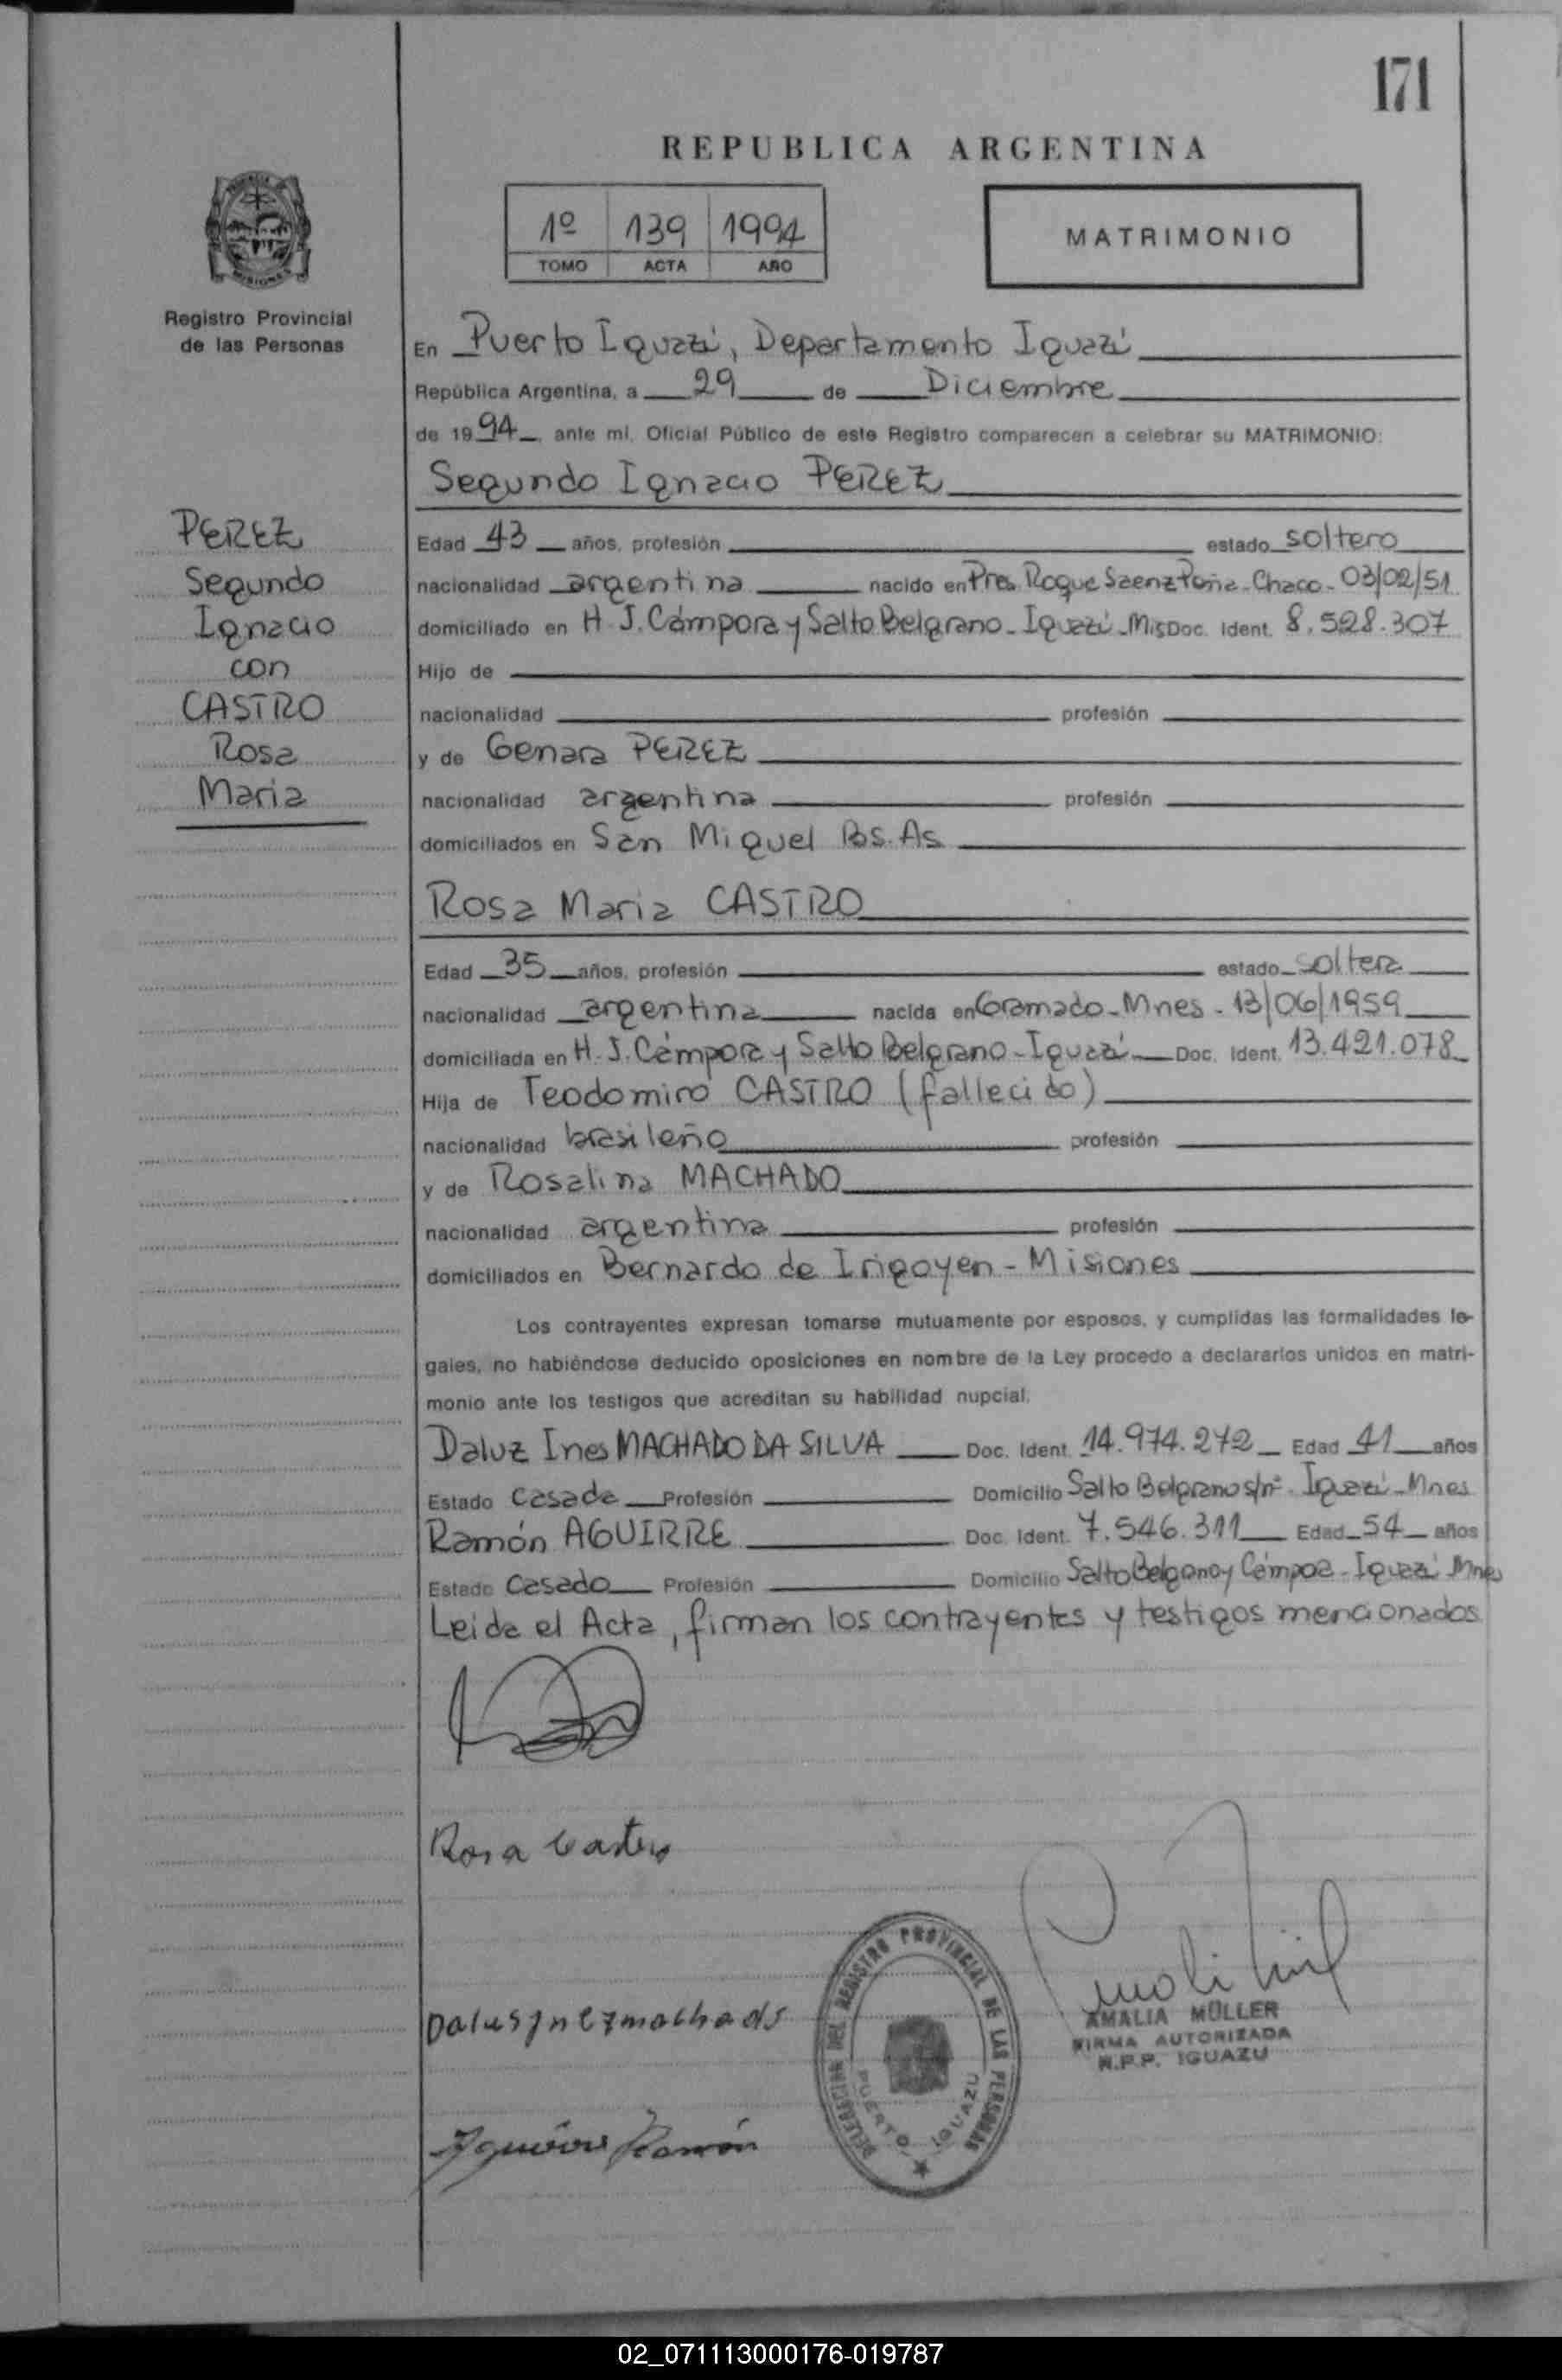 171
REPUBLICA ARGENTINA
1º 139 1994
TOMO ACTA AÑO
MATRIMONIO
MISIONES
Registro Provincial
de las Personas
PEREZ
Segundo
Ignacio
con
CASTRO
Rosa
Maria
En Puerto Iguazú, Departamento Iguazú
República Argentina, a 29 de Diciembre
de 1994, ante mi, Oficial Público de este Registro comparecen a celebrar su MATRIMONIO:
Segundo Ignacio PEREZ
Edad 43 años, profesión estado soltero
nacionalidad argentina nacido en Pres. Roque Saenz Peña - Chaco - 03/02/51
domiciliado en H. J. Cámpora y Salto Belgrano - Iguazú - Mis Doc. Ident. 8.528.307
Hijo de
nacionalidad profesión
y de Genara PEREZ
nacionalidad argentina profesión
domiciliados en San Miguel Bs. As
Rosa Maria CASTRO
Edad 35 años, profesión estado soltera
nacionalidad argentina nacida en Gramado - Mnes - 13/06/1959
domiciliada en H. J. Cámpora y Salto Belgrano - Iguazú Doc. Ident. 13.421.078
Hija de Teodomiro CASTRO (fallecido)
nacionalidad brasileño profesión
y de Rosalina MACHADO
nacionalidad argentina profesión
domiciliados en Bernardo de Irigoyen - Misiones
Los contrayentes expresan tomarse mutuamente por esposos, y cumplidas las formalidades le-
gales, no habiéndose deducido oposiciones en nombre de la Ley procedo a declararlos unidos en matri-
monio ante los testigos que acreditan su habilidad nupcial.
Daluz Ines MACHADO DA SILVA Doc. Ident. 14.974.272 Edad 41 años
Estado casada Profesión Domicilio Salto Belgrano s/nº - Iguazú - Mnes
Ramón AGUIRRE Doc. Ident. 7.546.311 Edad 54 años
Estado casado Profesión Domicilio Salto Belgrano y Cámpora - Iguazú Mnes
Leida el Acta, firman los contrayentes y testigos mencionados
Rosa Castro
Dalus Inez machado
Aguirre Ramón
DELEGACION DEL REGISTRO PROVINCIAL DE LAS PERSONAS
PUERTO IGUAZU
AMALIA MÜLLER
FIRMA AUTORIZADA
R.P.P. IGUAZU
02_071113000176-019787